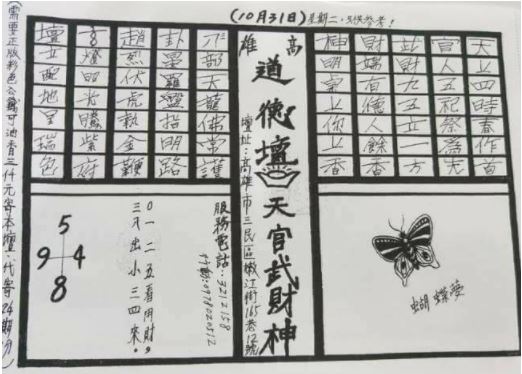 (10月31日)星期二,只供參考!
天上四時春作首
官人五祀祭為先
此財九五立一方
財端百億人餘香
神明桌上你上香
高雄
道德壇 天官武財神
壇址:高雄市三民區嫩江街165巷12號
邪天龍佛常護
卦羅燈招明路
趙烈伏虎執金鞭
玄燈明光騰紫府
壇立配地里瑞色
蝴蝶夢
服務電話:3212158
行動:0978020512
0一二五看用財,
三入出小三四來.
5
9 4
8
(需要正版彩色公籤可油香三仟元寄本壇.代寄24期分)